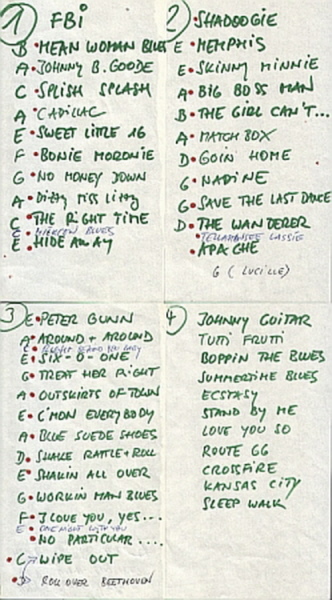 1 FBI
B • MEAN WOMAN BLUES
A • JOHNNY B. GOODE
C • SPLISH SPLASH
A • CADILLAC
E • SWEET LITTLE 16
F • BONIE MORONIE
G • NO MONEY DOWN
A • DIZZY MISS LIZZY
C • THE RIGHT TIME
C • BLUES
E • HIDE AWAY
2 • SHADOOGIE
E • MEMPHIS
E • SKINNY MINNIE
A • BIG BOSS MAN
B • THE GIRL CAN'T...
A • MATCH BOX
D • GOIN HOME
G • NADINE
G • SAVE THE LAST DANCE
D • THE WANDERER
• TELLAHASSEE LASSIE
• APACHE
G (LUCILLE)
3 E • PETER GUNN
A • AROUND + AROUND
E • SIX-O-ONE
G • TREAT HER RIGHT
A • OUTSKIRTS OF TOWN
E • C'MON EVERYBODY
A • BLUE SUEDE SHOES
D • SHAKE RATTLE + ROLL
E • SHAKIN ALL OVER
G • WORKIN MAN BLUES
F • I LOVE YOU, YES...
E • ONE NIGHT WITH YOU
• NO PARTICULAR...
• C WIPE OUT
• D ROLL OVER BEETHOVEN
4 JOHNNY GUITAR
TUTTI FRUTTI
BOPPIN THE BLUES
SUMMERTIME BLUES
ECSTASY
STAND BY ME
LOVE YOU SO
ROUTE 66
CROSSFIRE
KANSAS CITY
SLEEP WALK